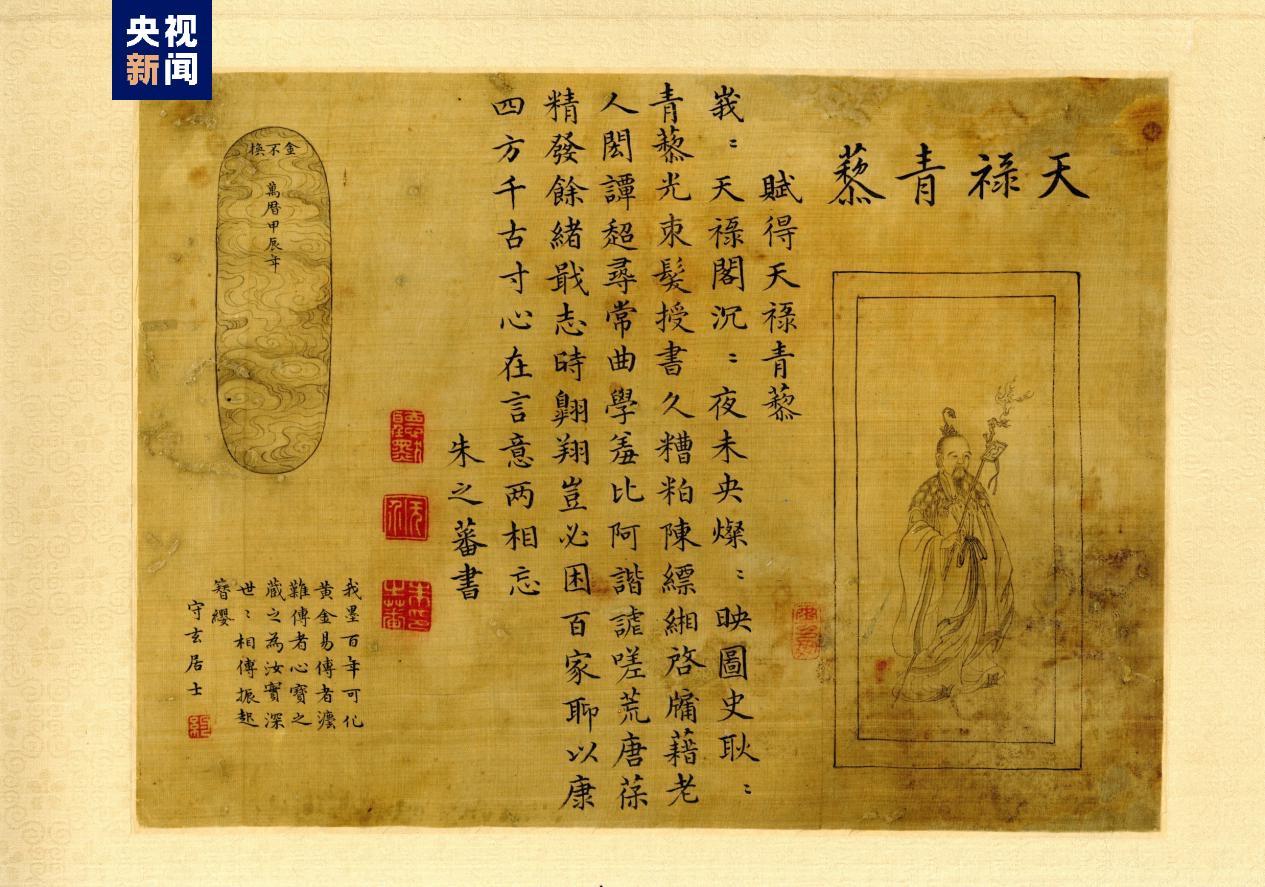 央视
新闻
天禄青藜
賦得天禄青藜
峩〻天禄閣沉〻夜未央燦〻映圖史耿〻
青藜光束髮授書久糟粕陳縹緗啓牖藉老
人閎譚超尋常曲學羞比阿諧謔嗟荒唐葆
精發餘緒戢志時翺翔豈必困百家聊以康
四方千古寸心在言意两相忘
朱之蕃書
金不換
萬曆甲辰年
我墨百年可化
黄金易傳者灋
難傳者心寶之
藏之為汝寳深
世〻相傳振起
簪纓
守玄居士